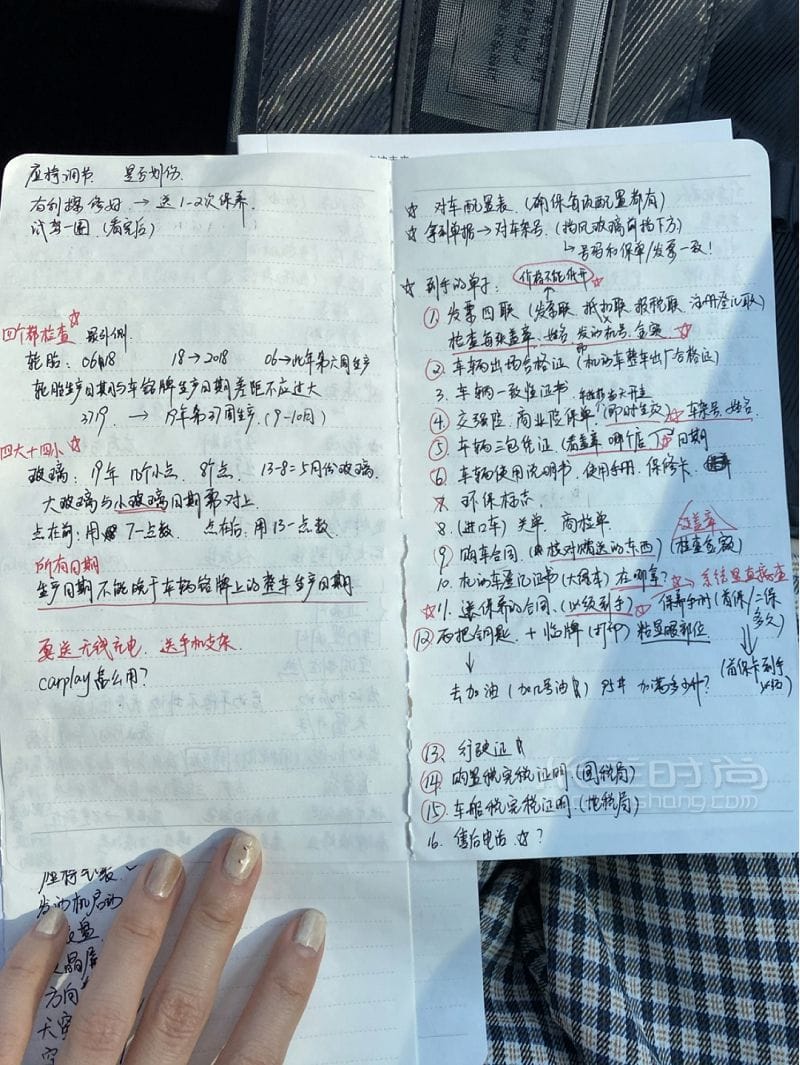 座椅调节 是否划伤.
有刮擦修好 → 送1-2次保养.
试驾一圈.(看完后)
四个都检查☆ 举个例.
轮胎: 0618 18→2018 06→此年第六周生产
轮胎生产日期与车铭牌生产日期差距不应过大
3719. → 19年第37周生产.(9-10月)
四大十四小☆
玻璃: 19年 8个点. 13-8=5月份玻璃.
大玻璃与小玻璃日期需对上.
点在前:用 7-点数. 点在后:用13-点数.
所有日期
生产日期不能晚于车辆铭牌上的整车生产日期
要送无线充电、送手机支架.
carplay怎么用?
座椅
发动机启动
盘.
晶屏
方向
天窗
☆ 对车配置表.(确保每项配置都有)
☆ 拿到单据→对车架号.(挡风玻璃前挡下方)
↳号码和保单/发票一致!
☆ 到手的单子: 价格不能低开☆
① 发票四联(发票联 抵扣联 报税联 注册登记联)
检查每张盖章、姓名 发动机号、金额☆
② 车辆出场合格证(机动车整车出厂合格证)
3. 车辆一致性证书.
④ 交强险、商业险保单.(即时生效)☆ 车架号、姓名
⑤ 车辆三包凭证.(看盖章 哪个店)☆日期
⑥ 车辆使用说明书.使用手册.保修卡.
7 环保标志
8. (进口车) 关单.商检单. 没盖章
⑨ 购车合同.(核对赠送的东西)(检查金额)
10. 机动车登记证书(大绿本) 在哪拿?☆→系统里查
☆11. 送保养的合同.(必须到手)☆ 保养手册(首保/二保多久)
⑫ 两把钥匙. + 临牌(打印) 粘显眼部位
(首保卡到手
↓
去加油(加几号油) 95# 加满多少升?
⑬. 行驶证
⑭ 购置税完税证明(国税局)
⑮. 车船税完税证明.(地税局)
16. 售后电话.☆?
时尚
shang.com